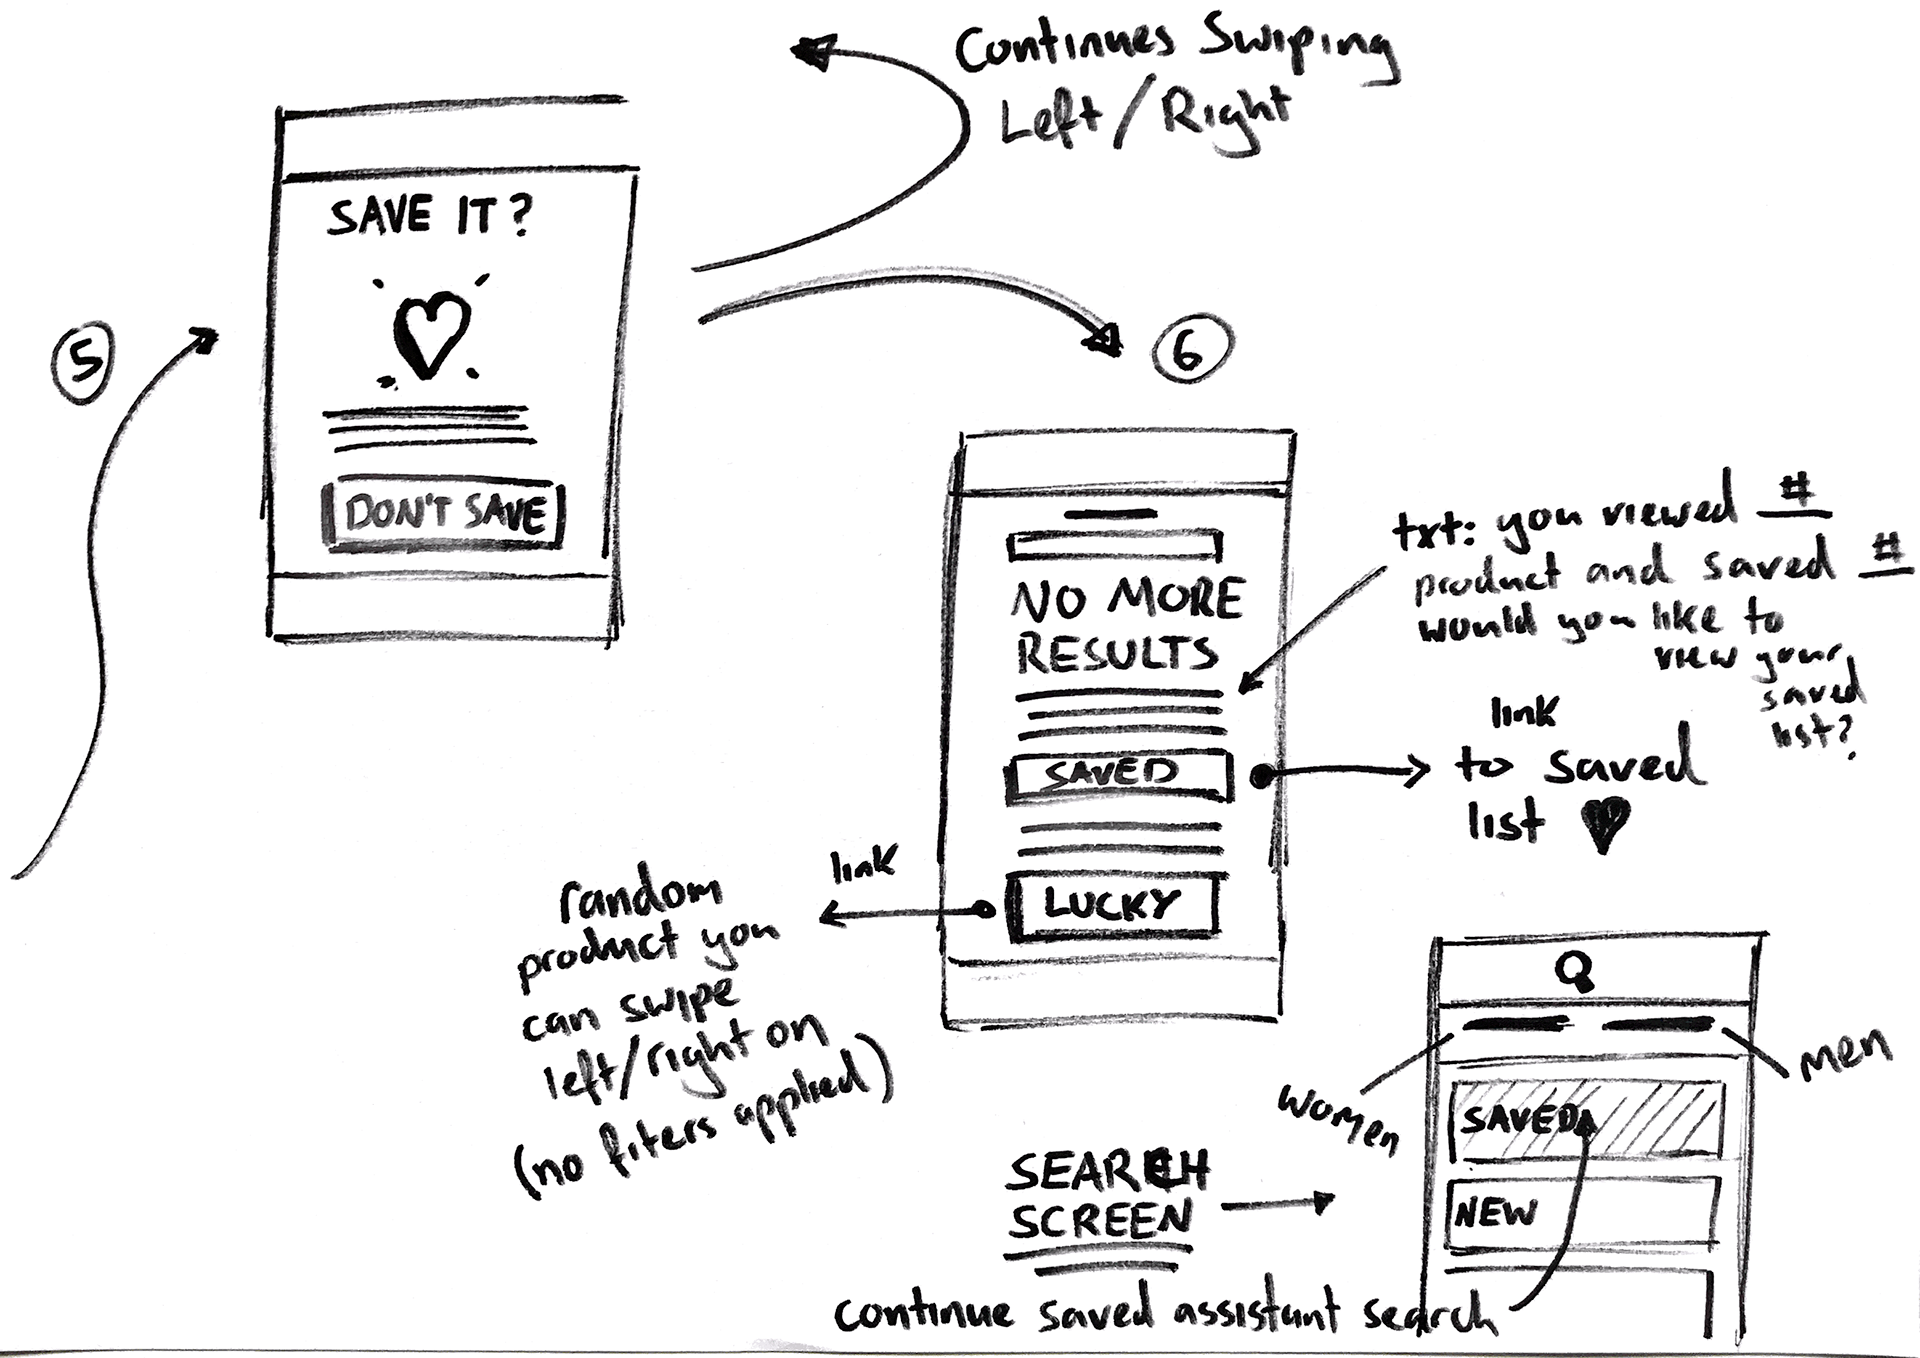 Continues Swiping
Left/Right
SAVE IT?
5
DON'T SAVE
6
NO MORE
RESULTS
SAVED
LUCKY
txt: you viewed #
product and saved #
would you like to
view your
saved
list?
link
to saved
list
link
random
product you
can swipe
left/right on
(no filters applied)
women
men
SAVED
NEW
SEARCH
SCREEN
continue saved assistant search